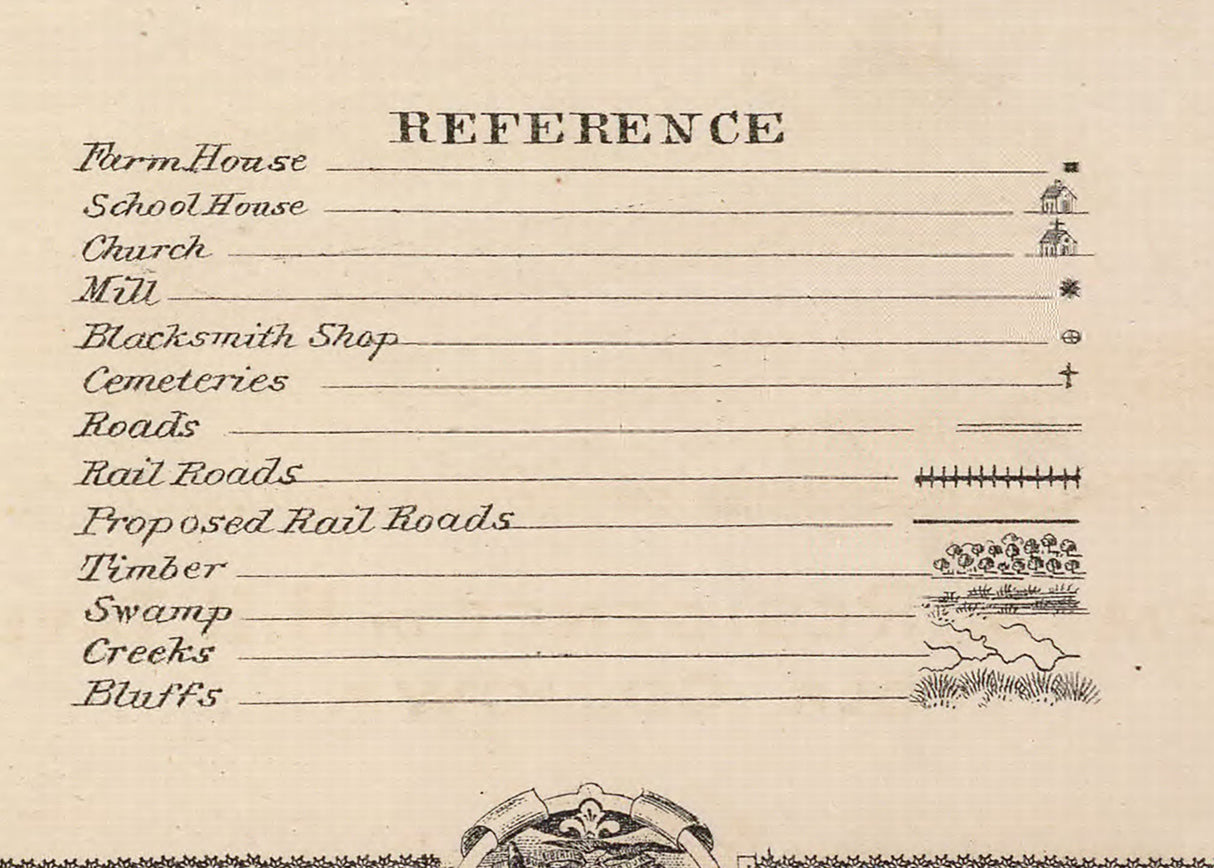 REFERENCE
Farm House
School House
Church
Mill
Blacksmith Shop
Cemeteries
Roads
Rail Roads
Proposed Rail Roads
Timber
Swamp
Creeks
Bluffs